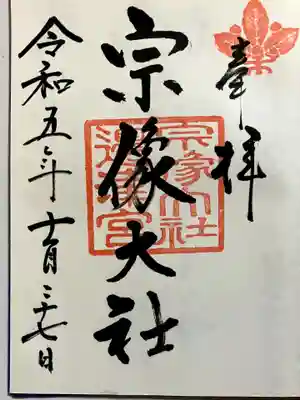 奉拝
宗像大社
宗象大社
邊津宮
令和五年十一月二十七日